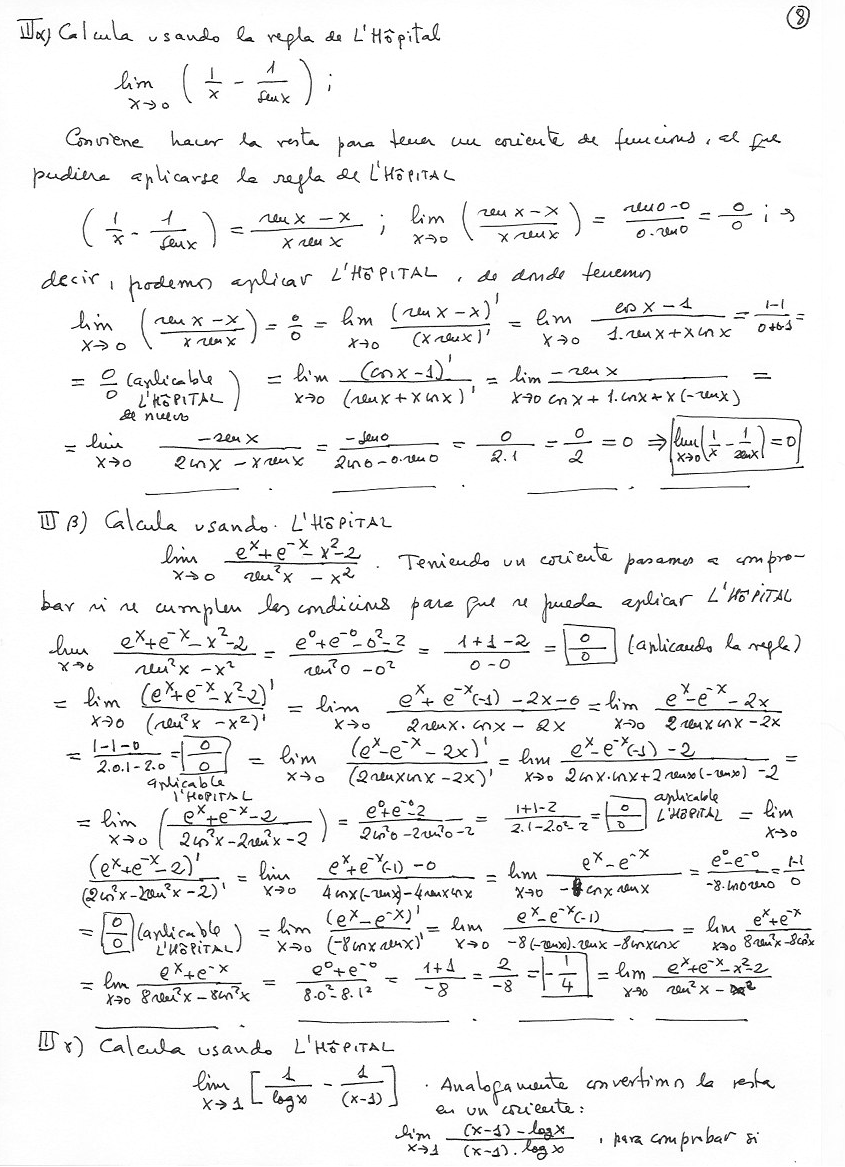 ⑧
IIα) Calcula usando la regla de L'Hôpital
lim x→0 ( 1/x - 1/senx ) ;
Conviene hacer la resta para tener un cociente de funcions, al que
pudiera aplicarse la regla de L'HÔPITAL
( 1/x - 1/senx ) = (sen x - x)/(x sen x) ; lim x→0 ( (sen x - x)/(x senx) ) = (sen0-0)/(0.sen0) = 0/0 ; es
decir, podemos aplicar L'HÔPITAL, de donde tenemos
lim x→0 ( (sen x - x)/(x senx) ) = 0/0 = lim x→0 (sen x - x)'/(x senx)' = lim x→0 (cos x - 1)/(1.senx + x cos x) = (1-1)/(0+0.1) =
= 0/0 (aplicable L'HÔPITAL de nuevo) = lim x→0 (cosx - 1)'/(senx + x cosx)' = lim x→0 (-sen x)/(cos x + 1.cosx + x(-senx)) =
= lim x→0 (-sen x)/(2cosx - x senx) = (-sen0)/(2cos0 - 0.sen0) = 0/2.1 = 0/2 = 0 ⇒ lim x→0 ( 1/x - 1/senx ) = 0
II β) Calcula usando L'HÔPITAL
lim x→0 (e^x + e^-x - x² - 2)/(sen²x - x²) . Teniendo un cociente pasamos a compro-
bar si se cumplen las condicions para que se pueda aplicar L'HÔPITAL
lim x→0 (e^x + e^-x - x² - 2)/(sen²x - x²) = (e^0 + e^-0 - 0² - 2)/(sen²0 - 0²) = (1+1-2)/(0-0) = 0/0 (aplicando la regla)
= lim x→0 (e^x + e^-x - x² - 2)'/(sen²x - x²)' = lim x→0 (e^x + e^-x(-1) - 2x - 0)/(2senx.cosx - 2x) = lim x→0 (e^x - e^-x - 2x)/(2senxcosx - 2x)
= (1-1-0)/(2.0.1-2.0) = 0/0 aplicable L'HÔPITAL = lim x→0 (e^x - e^-x - 2x)'/(2senxcosx - 2x)' = lim x→0 (e^x - e^-x(-1) - 2)/(2cosx.cosx + 2senx(-senx) - 2) =
= lim x→0 ( (e^x + e^-x - 2)/(2cos²x - 2sen²x - 2) ) = (e^0 + e^-0 - 2)/(2cos²0 - 2sen²0 - 2) = (1+1-2)/(2.1-2.0²-2) = 0/0 aplicable L'HÔPITAL = lim x→0
(e^x + e^-x - 2)'/(2cos²x - 2sen²x - 2)' = lim x→0 (e^x + e^-x(-1) - 0)/(4cosx(-senx) - 4senxcosx) = lim x→0 (e^x - e^-x)/(-8cosx senx) = (e^0 - e^-0)/(-8.cos0sen0) = (1-1)/0
= 0/0 (aplicable L'HÔPITAL) = lim x→0 (e^x - e^-x)'/(-8cosx senx)' = lim x→0 (e^x - e^-x(-1))/(-8(-senx).senx - 8cosxcosx) = lim x→0 (e^x + e^-x)/(8sen²x - 8cos²x)
= lim x→0 (e^x + e^-x)/(8sen²x - 8cos²x) = (e^0 + e^-0)/(8.0² - 8.1²) = (1+1)/(-8) = 2/-8 = -1/4 = lim x→0 (e^x + e^-x - x² - 2)/(sen²x - x²)
II γ) Calcula usando L'HÔPITAL
lim x→1 [ 1/logx - 1/(x-1) ] . Analogamente convertimos la resta
en un cociente:
lim x→1 ((x-1) - logx)/((x-1).logx) , para comprobar si